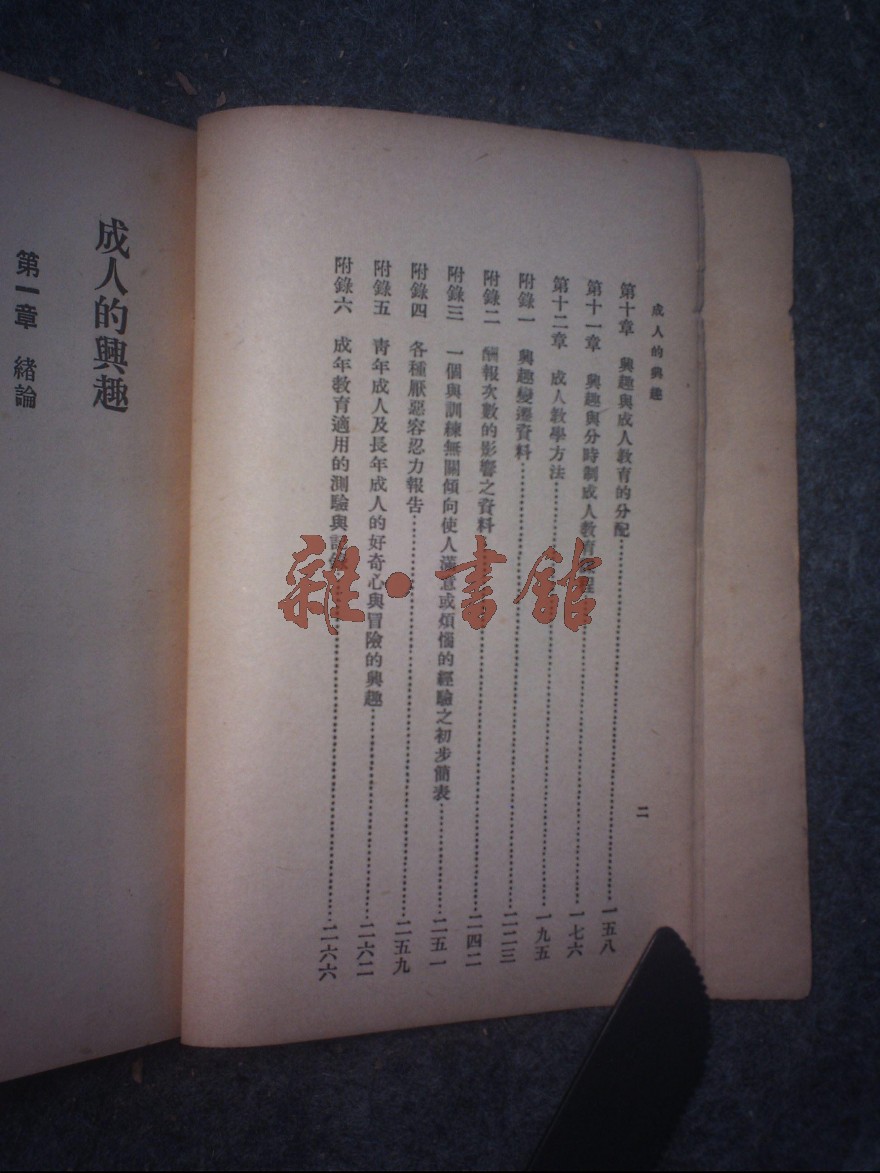 成人的興趣
第十章 興趣與成人教育的分配 一五八
第十一章 興趣與分時制成人教育 一七六
第十二章 成人教學方法 一九五
附錄一 興趣變遷資料 二二三
附錄二 酬報次數的影響之資料 二四二
附錄三 一個與訓練無關傾向使人滿意或煩惱的經驗之初步簡表 二五一
附錄四 各種厭惡容忍力報告 二五九
附錄五 青年成人及長年成人的好奇心與冒險的興趣 二六二
附錄六 成年教育適用的測驗與 二六六
二
成人的興趣
第一章 緒論
雜·書館